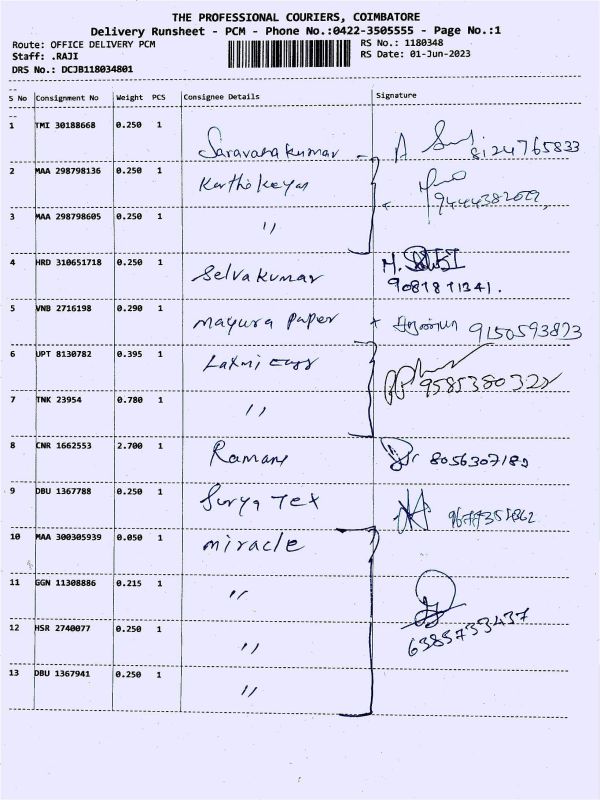 THE PROFESSIONAL COURIERS, COIMBATORE
Delivery Runsheet - PCM - Phone No.:0422-3505555 - Page No.:1
Route: OFFICE DELIVERY PCM RS No.: 1180348
Staff: .RAJI RS Date: 01-Jun-2023
DRS No.: DCJB118034801
S No Consignment No Weight PCS Consignee Details Signature
1 TMI 30188668 0.250 1 Saravanakumar 8124765833
2 MAA 298798136 0.250 1 Karthikeyan
3 MAA 298798605 0.250 1 "
4 HRD 310651718 0.250 1 Selvakumar
5 VNB 2716198 0.290 1 mayura paper 9150593823
6 UPT 8130782 0.395 1 Laxmi
7 TNK 23954 0.780 1 "
8 CNR 1662553 2.700 1 Ramani
9 DBU 1367788 0.250 1 Surya Tex
10 MAA 300305939 0.050 1 miracle
11 GGN 11308886 0.215 1 "
12 HSR 2740077 0.250 1 " 6385733437
13 DBU 1367941 0.250 1 "